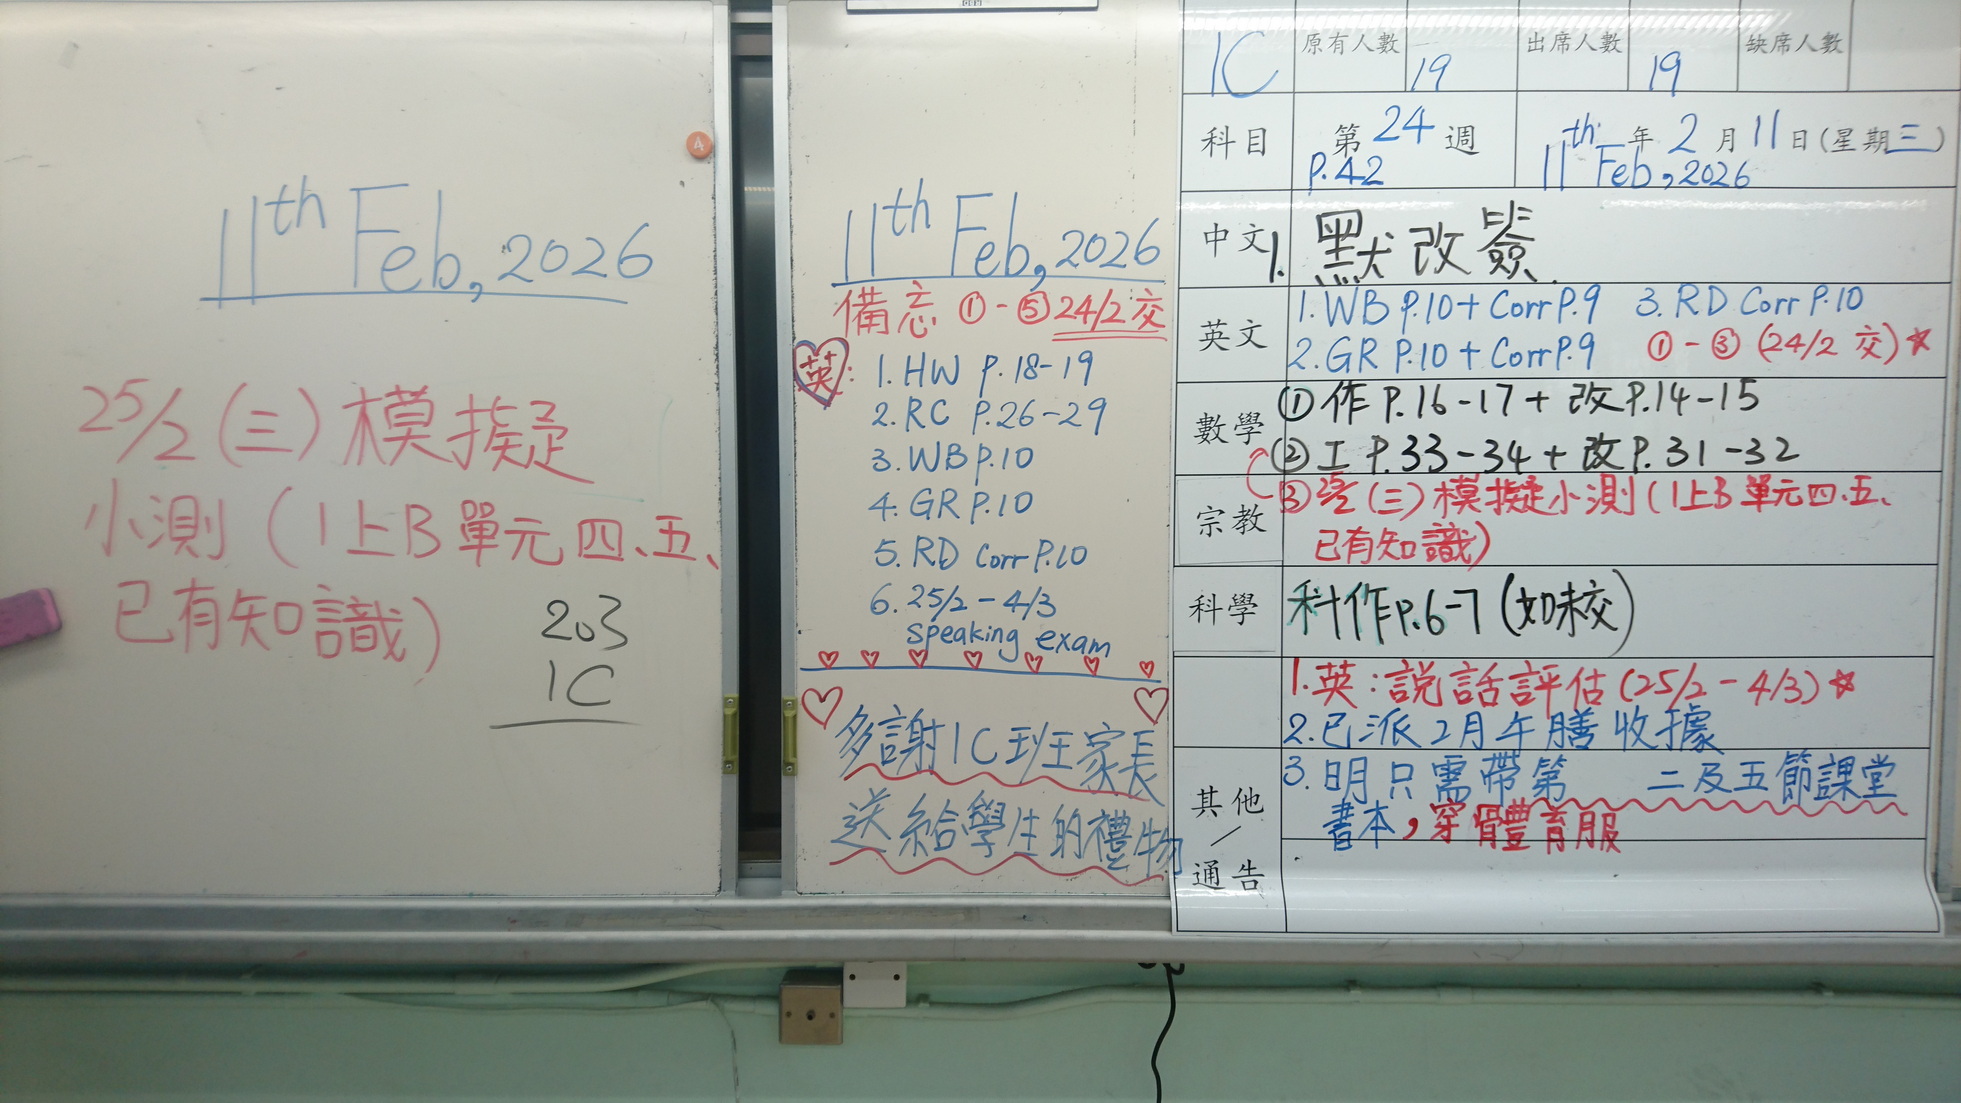 11th Feb, 2026
25/2 (三) 模擬
小測 (1上B 單元四、五、
已有知識)
203
1C
4
11th Feb, 2026
備忘 ①-⑤ 24/2 交
英:
1. HW P.18-19
2. RC P.26-29
3. WB P.10
4. GR P.10
5. RD Corr P.10
6. 25/2 - 4/3
speaking exam
多謝1C班家長
送給學生的禮物
1C 原有人數 19 出席人數 19 缺席人數
科目 第 24 週 th 年 2 月 11 日 (星期三)
P.42 11 Feb, 2026
中文 1. 默改簽
英文 1. WB P.10 + Corr P.9 3. RD Corr P.10
2. GR P.10 + Corr P.9 ①-③ (24/2 交)
數學 ① 作 P.16-17 + 改 P.14-15
② 工 P.33-34 + 改 P.31-32
宗教 ③ (三) 模擬小測 (1上B 單元四、五、
已有知識)
科學 科作 P.6-7 (如未交)
1. 英:說話評估 (25/2 - 4/3)
2. 已派2月午膳收據
其他/通告 3. 明只需帶第 二及五節課堂
書本,穿體育服